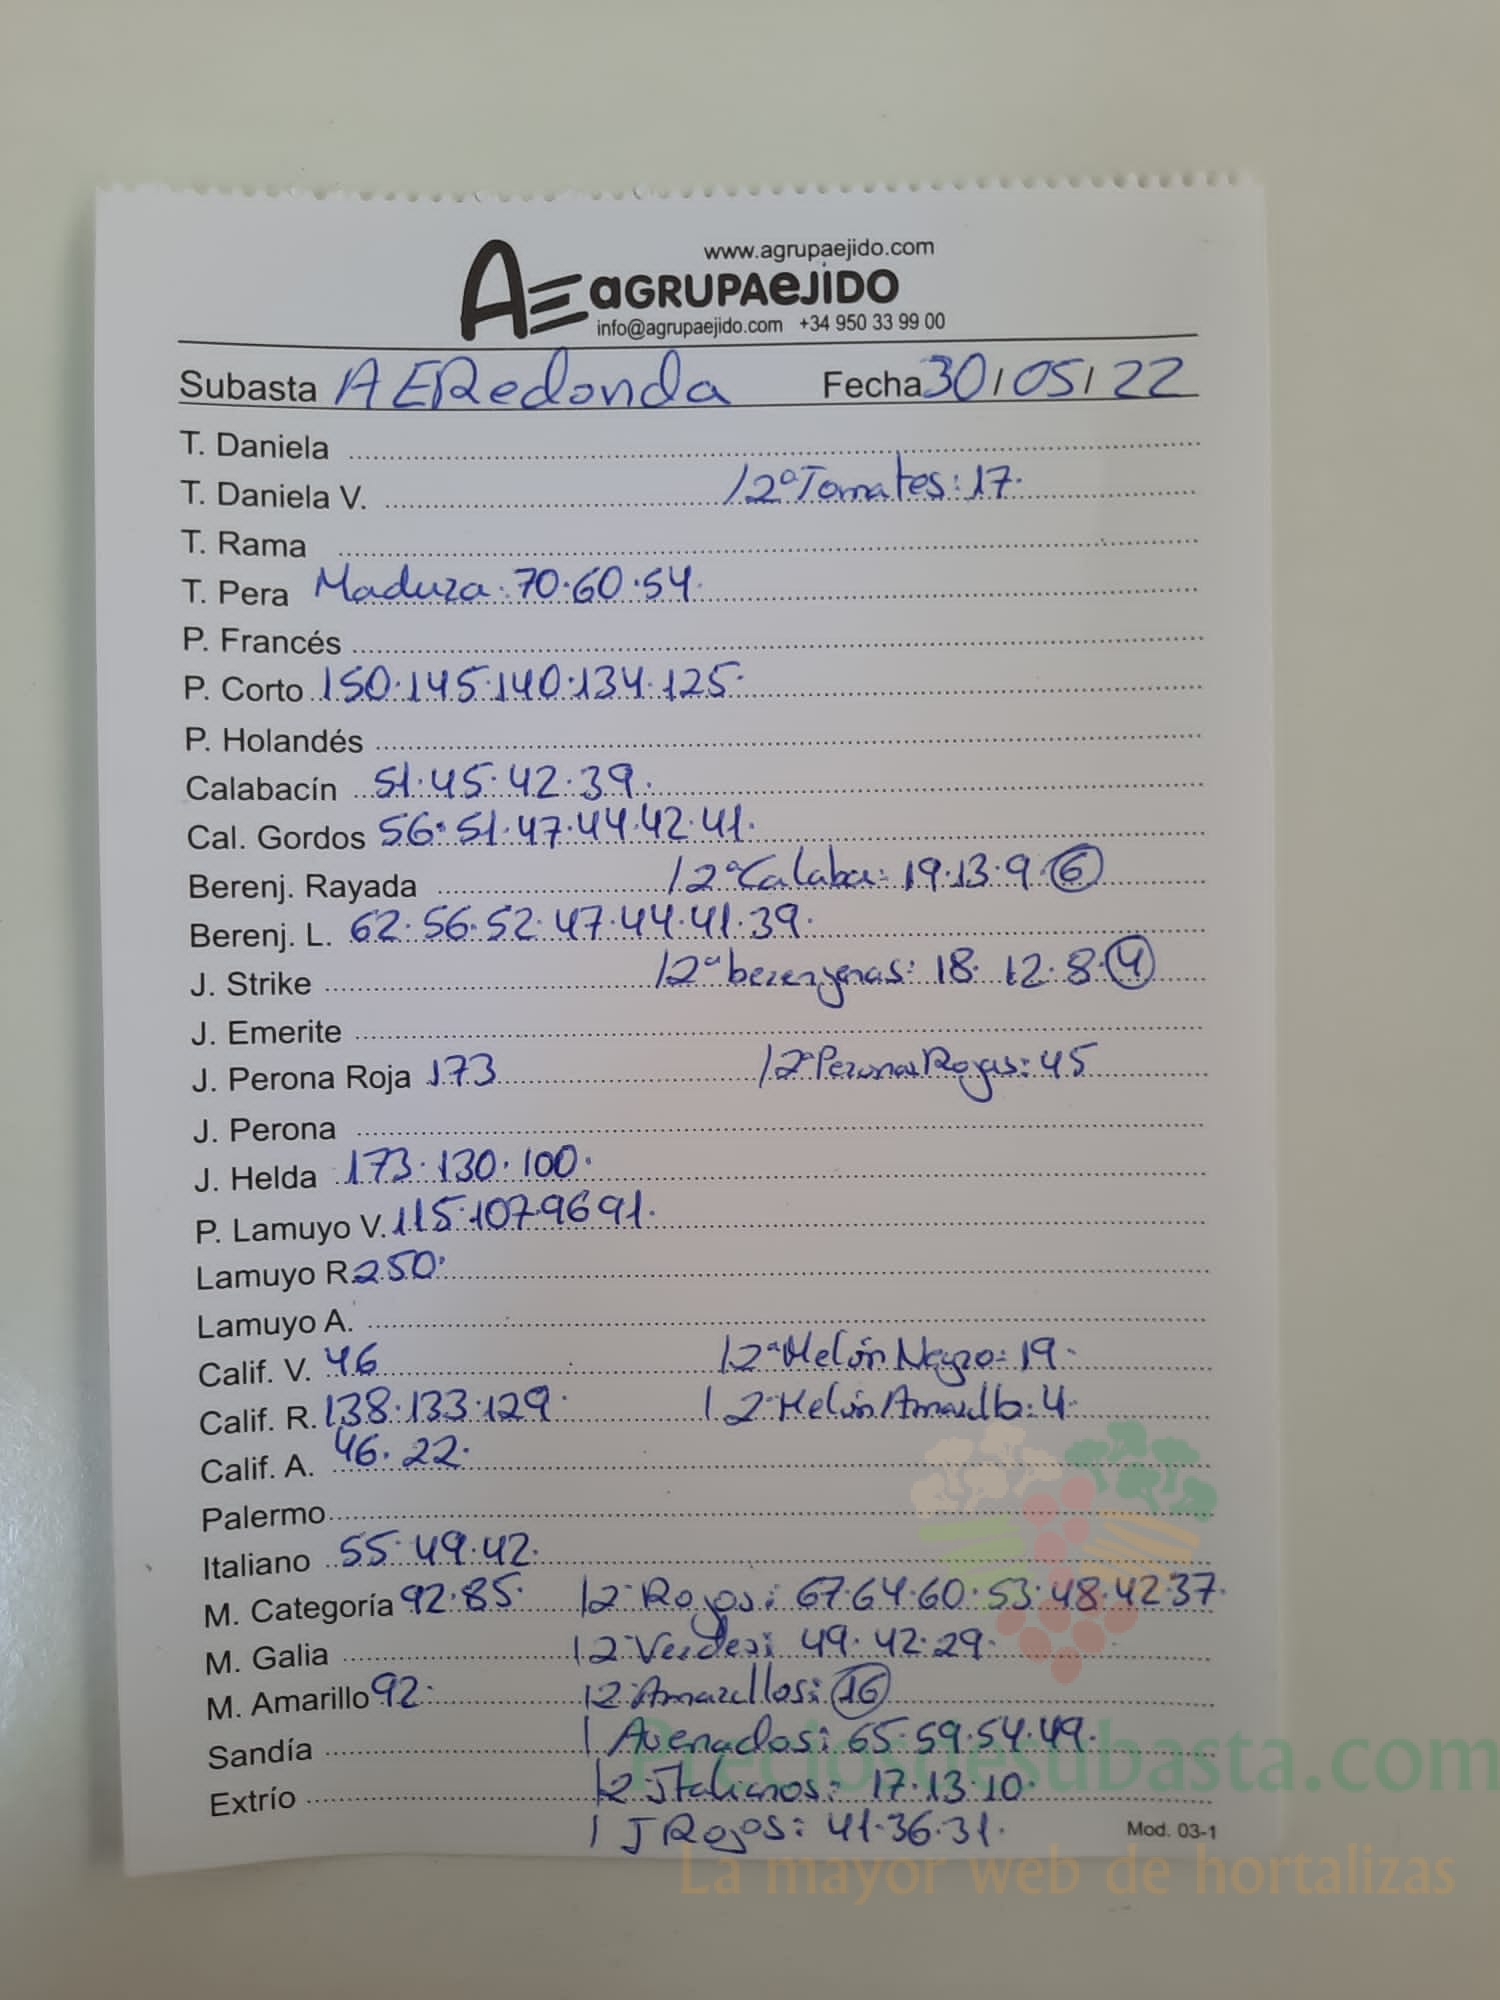 www.agrupaejido.com
AE aGRUPAeJIDO
info@agrupaejido.com +34 950 33 99 00
Subasta AERedonda Fecha 30/05/22
T. Daniela
T. Daniela V. /2ª Tomates: 17.
T. Rama
T. Pera Madura: 70.60.54.
P. Francés
P. Corto 150.145.140.134.125.
P. Holandés
Calabacín 51.45.42.39.
Cal. Gordos 56.51.47.44.42.41.
Berenj. Rayada /2ª Calaba: 19.13.9.6
Berenj. L. 62.56.52.47.44.41.39.
J. Strike /2ª berenjenas: 18.12.8.4
J. Emerite
J. Perona Roja 173 /2ª Peronas Rojas: 45
J. Perona
J. Helda 173.130.100.
P. Lamuyo V. 115.107.96 91.
Lamuyo R. 250.
Lamuyo A.
Calif. V. 46 /2ª Melón Negro: 19.
Calif. R. 138.133.129. /2ª Melón Amarillo: 4.
Calif. A. 46.22.
Palermo
Italiano 55.49.42.
M. Categoría 92.85. /2ª Rojos: 67.64.60.53.48.42.37.
M. Galia /2ª Verdes: 49.42.29.
M. Amarillo 92. /2ª Amarillos: 16
Sandía / Asenados: 65.59.54.49.
Extrío /2ª Italianos: 17.13.10.
/ J Rojos: 41.36.31.
Mod. 03-1
Preciosdesubasta.com
La mayor web de hortalizas